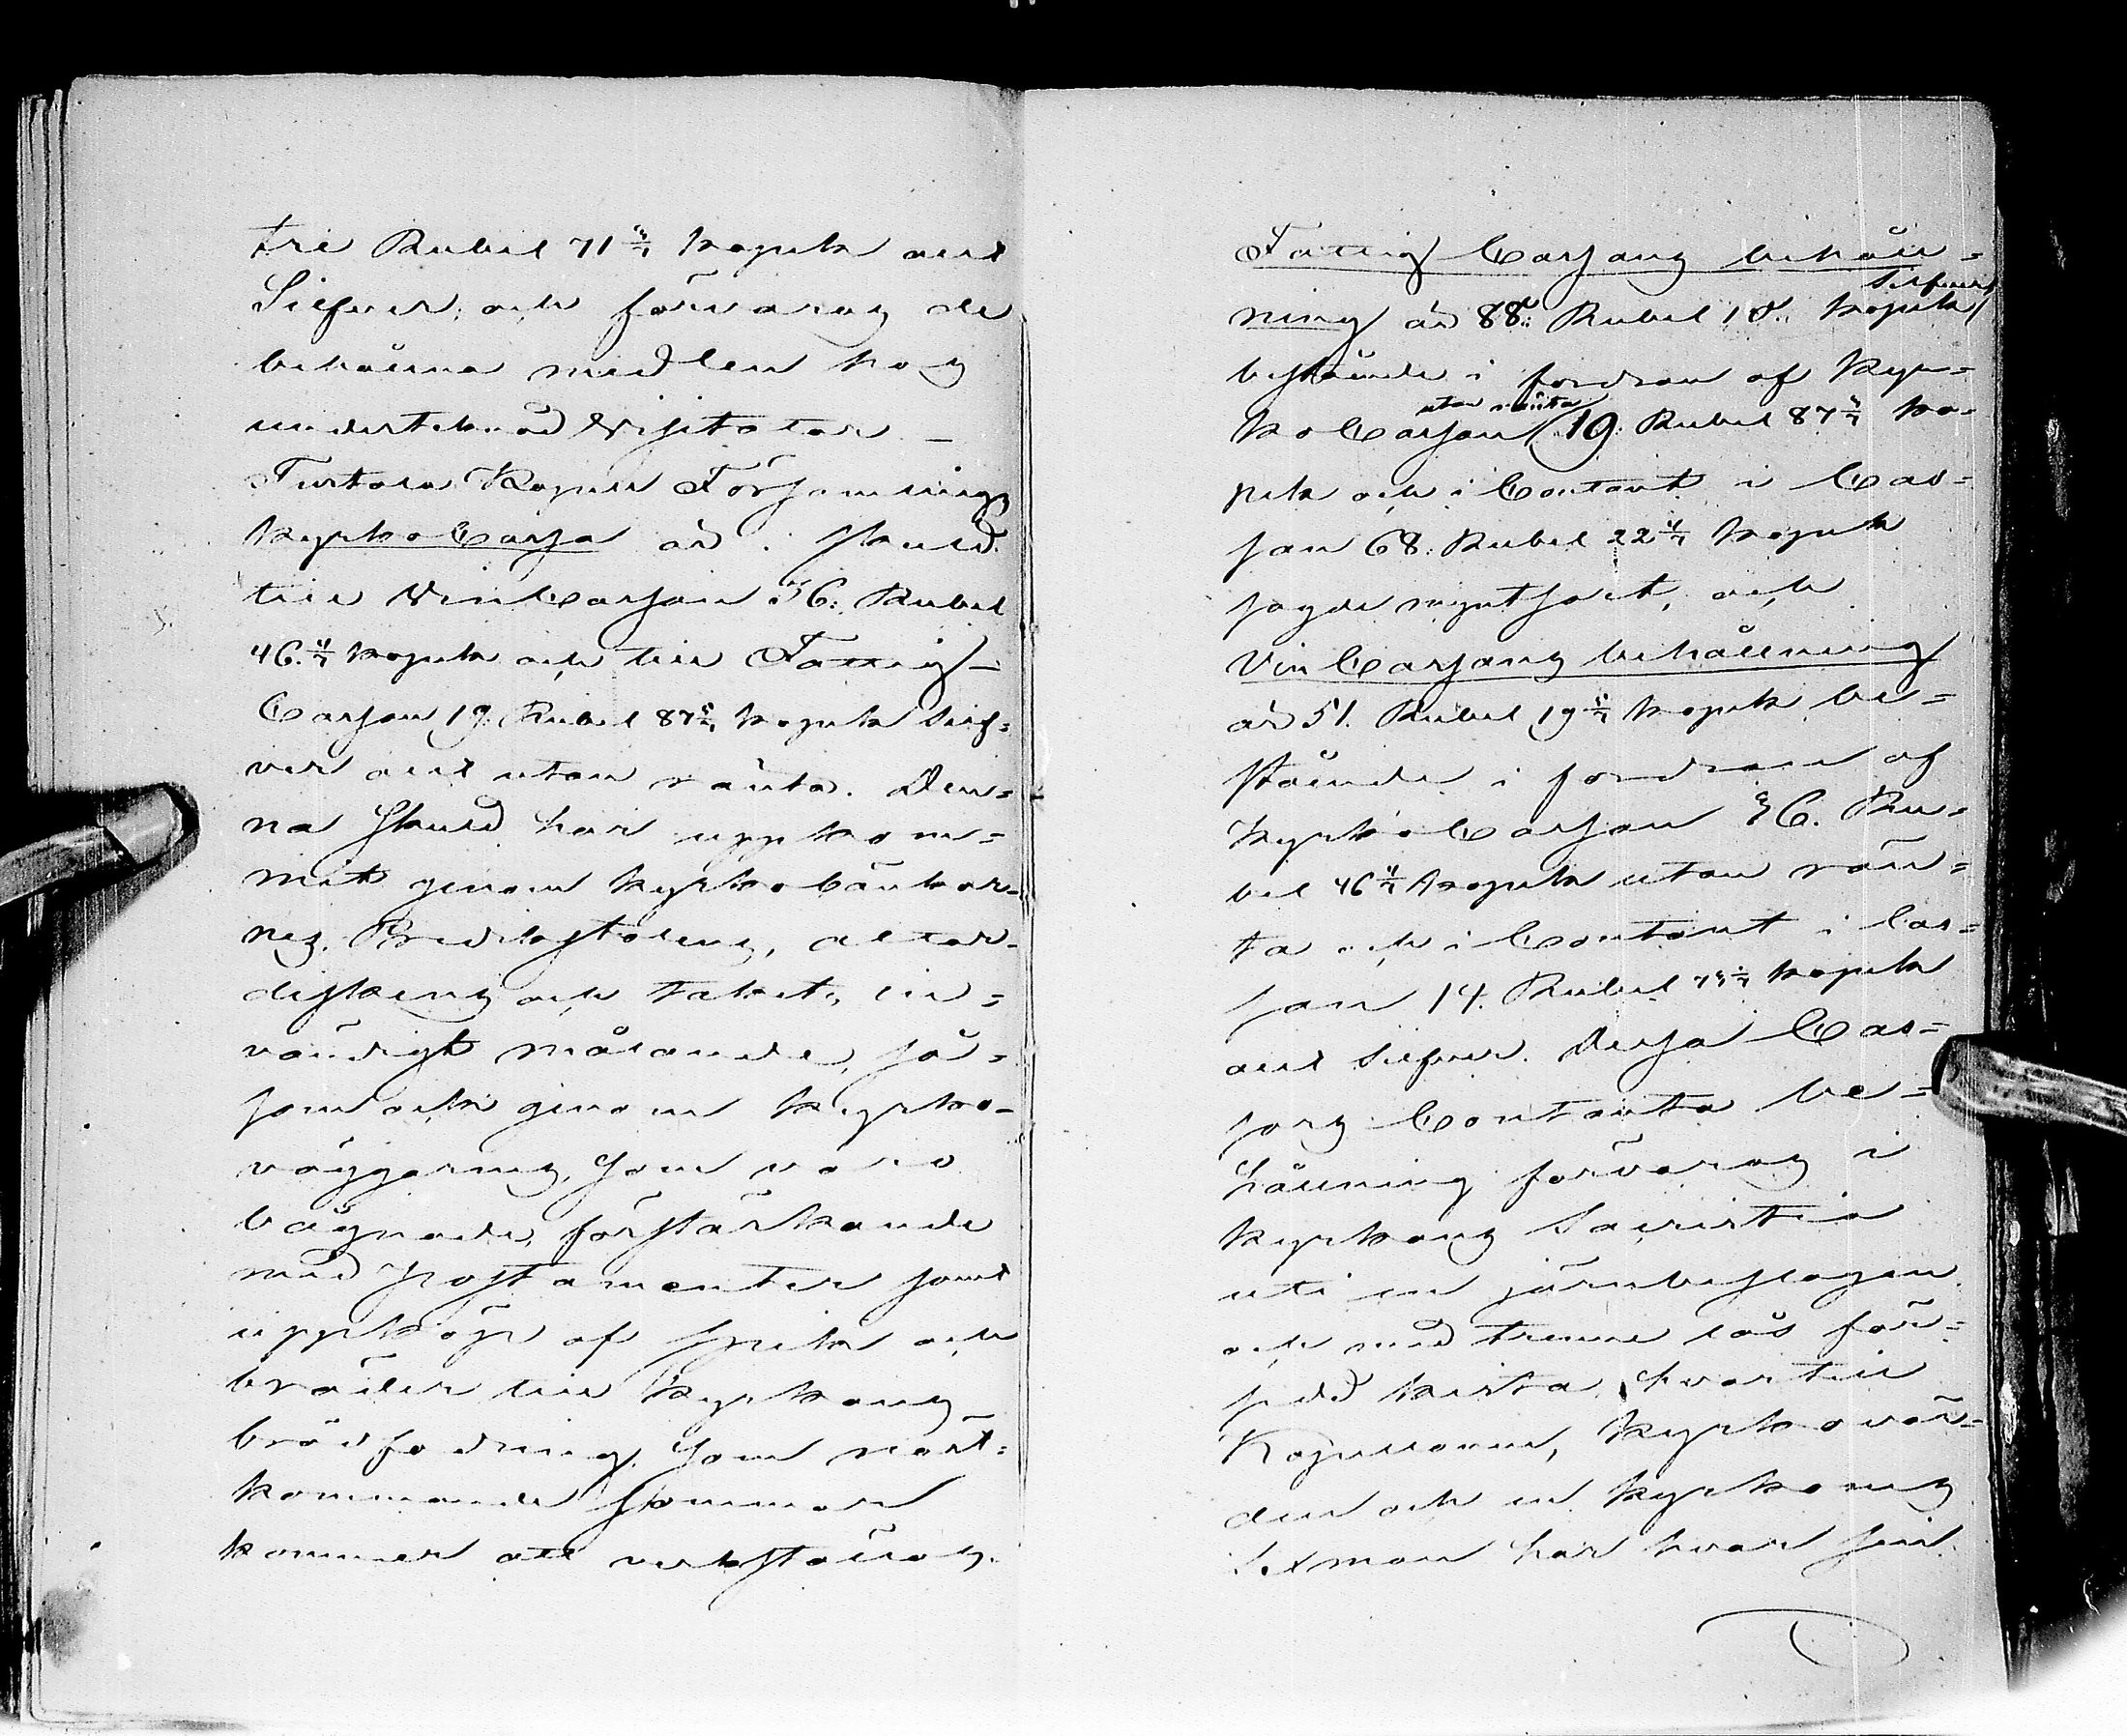 tre Rubel 71 3/7 kopek allt
Silfver, och förvaras de
behållna medlen hos
undertecknad Visitator —
Turtola Kapell Församlings
kyrko Cassa är i skuld
till Vin Cassan 36. Rubel
46. 4/7 kopek och till Fattig-
Cassan 19. Rubel 87 5/7 kopek Silf=
ver allt utan ränta. Den=
na skuld har uppkom=
mit genom kyrkobänkar=
nes, Predikstolens, altar-
diskens och takets in=
vändigt målande, så=
som ock genom kyrko-
väggarnes, som voro
bågnade, förstärkande
med postamenter samt
uppköp af spik och
bräder till kyrkans
brädfodring, som näst=
kommande sommar
kommer att verkställas.
Fattig Cassans behåll=
ning är 88: Rubel 10. kopek Silfver
bestående i fordran af Kyr=
ko Cassan utan ränta 19 Rubel 87 5/7 ko-
pek och i Contant i Cas=
san 68. Rubel 22 4/7 kopek
sagde myntsort, och
Vin Cassans behållning
är 51. Rubel 19 5/7 kopek be=
stående i fordran af
Kyrko Cassan 36. Ru=
bel 46 4/7 kopek utan rän=
ta och i Contant i Cas=
san 14. Rubel 73 1/7 kopek
allt Silfver. Dessa Cas=
sors Contanta be=
hållning förvaras i
kyrkans Sacristia
uti en järnbeslagen
och med trenne lås för=
sedd kista, hvartill
Kapellanen, Kyrkovär=
den och en kyrkans
Sexman har hvar sin